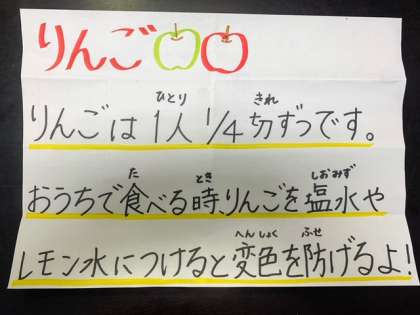 りんご
ひとり きれ
りんごは1人1/4切ずつです。
た とき しおみず
おうちで食べる時、りんごを塩水や
へんしょく ふせ
レモン水につけると変色を防げるよ!